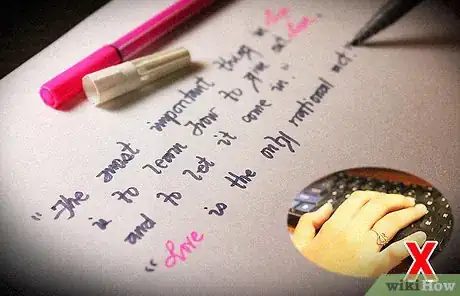 "The most important thing in
is to learn how to give out love
and to let it come in."
"Love is the only rational act."
X
wikiHow